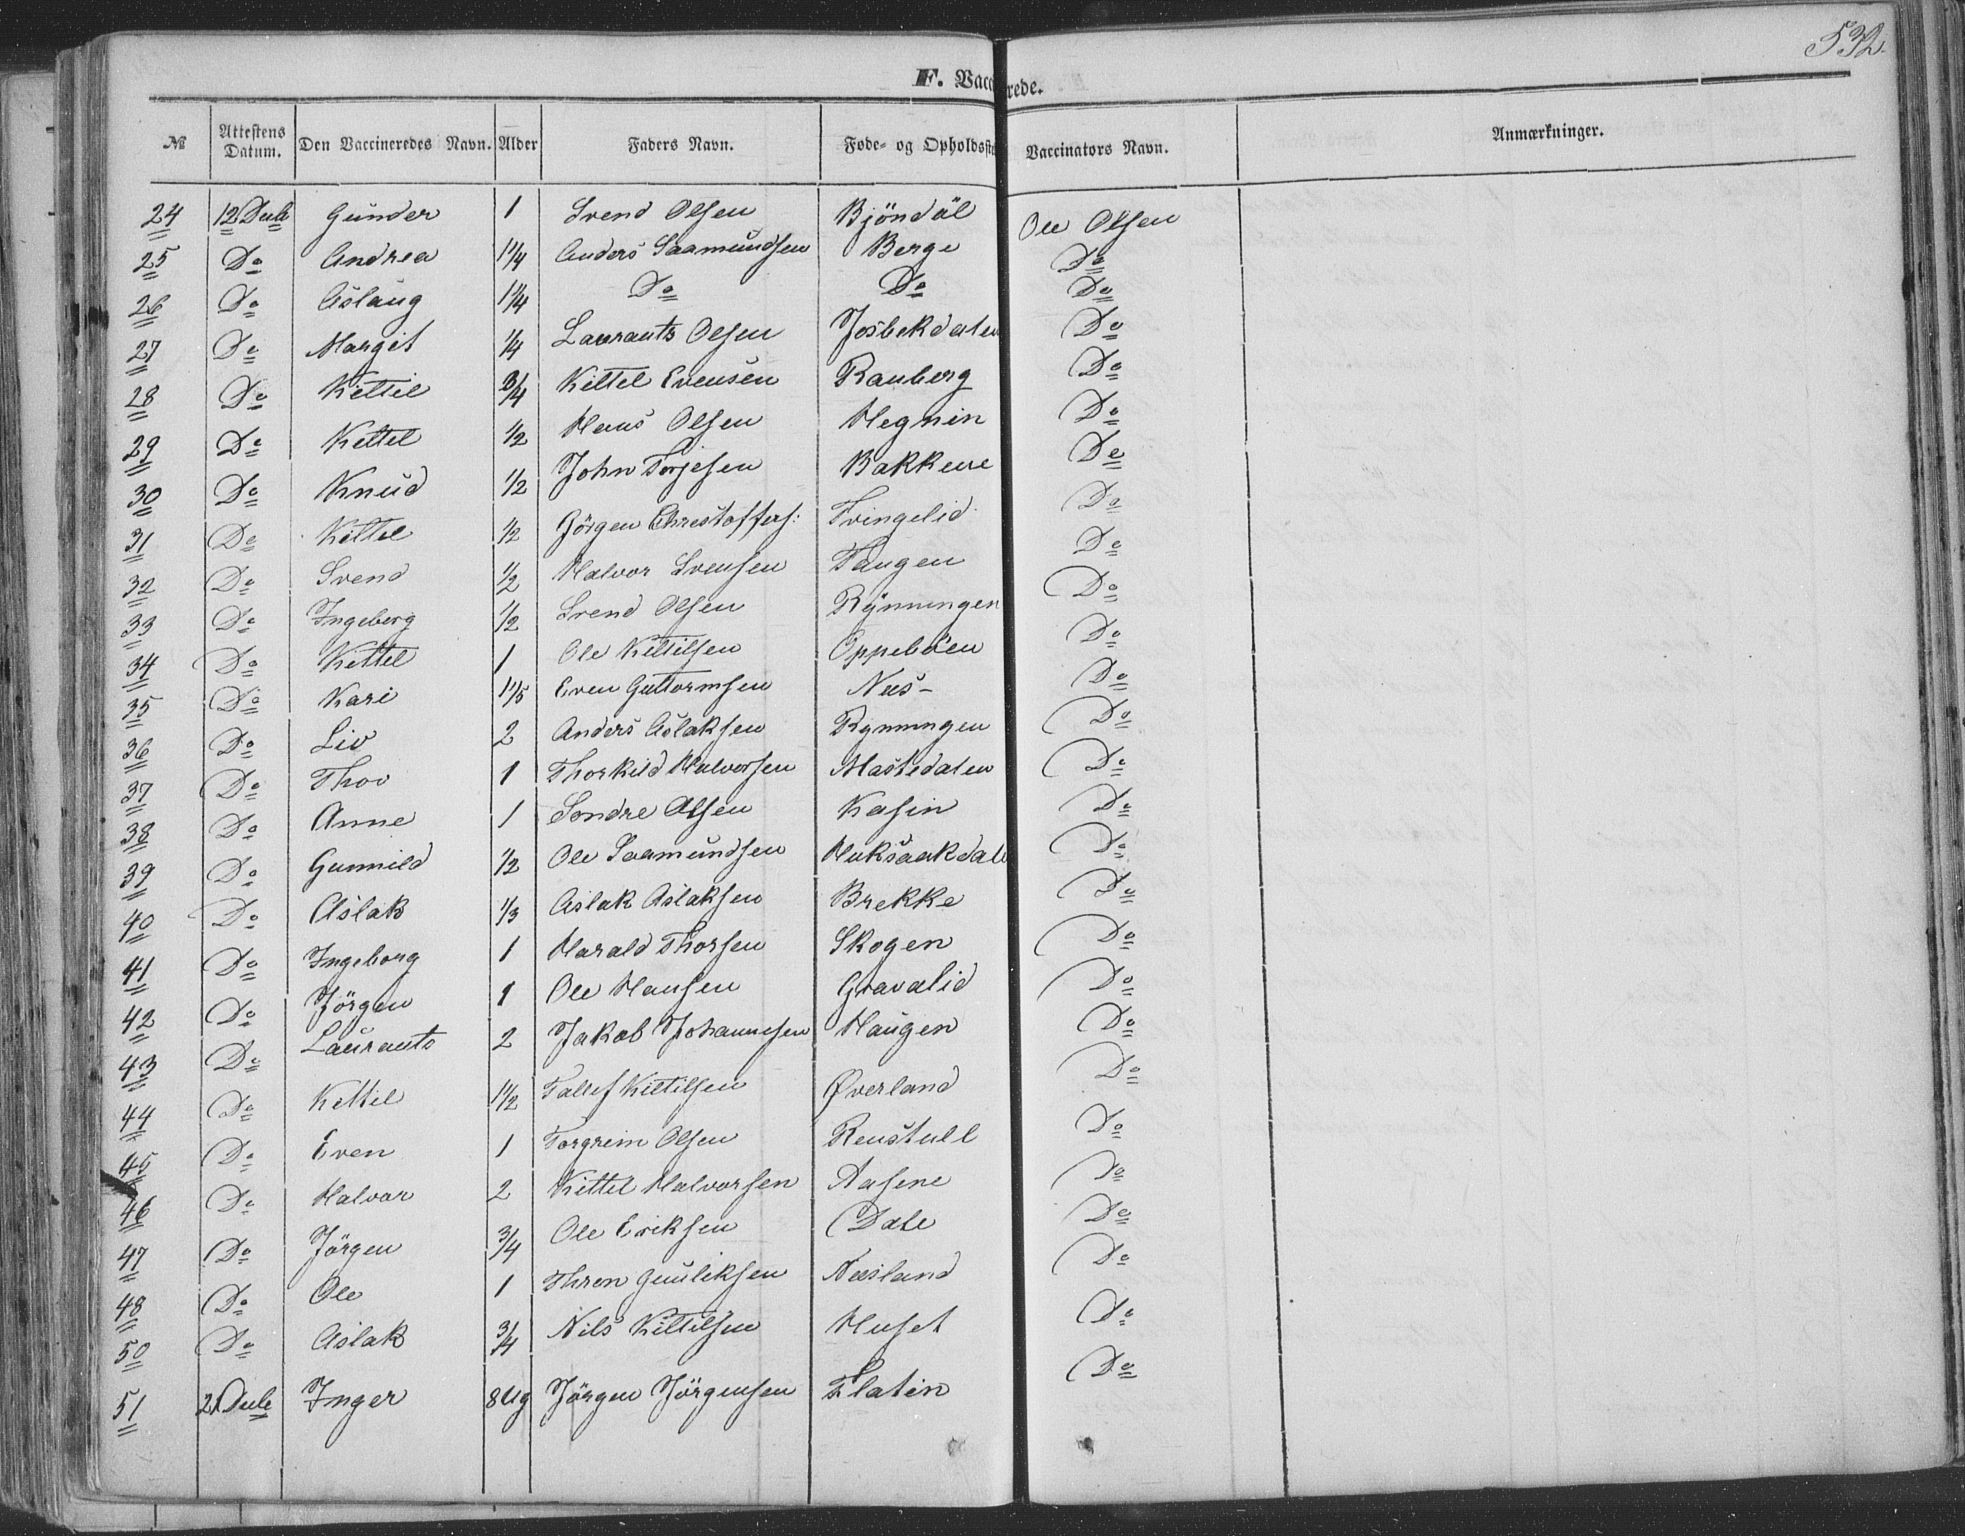 532
F. Vaccinerede.
№ | Attestens Datum. | Den Vaccineredes Navn. | Alder | Faders Navn. | Føde- og Opholdsste | Vaccinators Navn. | Anmærkninger.
24 12 Juli Gunder 1 Svend Olsen Bjöndal Ole Olsen
25 Do Andrea 1¼ Anders Saamundsen Berge Do
26 Do Aslaug 1¼ Do Do Do
27 Do Margit ¼ Laurants Olsen Josbekdalen Do
28 Do Kettil ¾ Kittel Evensen Rauberg Do
29 Do Kettel ½ Hans Olsen Hegnin Do
30 Do Knud ½ John Torjesen Bakkene Do
31 Do Kittel ½ Jörgen Christoffers: Tvingelid Do
32 Do Svend ½ Halvor Svensen Tangen Do
33 Do Ingeberg ½ Svend Olsen Rynningen Do
34 Do Kettel 1 Ole Kittilsen Oppeböen Do
35 Do Kari 1⅕ Even Guttormsen Nes- Do
36 Do Liv 2 Anders Aslaksen Rynningen Do
37 Do Thov 1 Thorkild Halvorsen Mastedalen Do
38 Do Anne 1 Sondre Olsen Kasin Do
39 Do Gunnild ½ Ole Saamundsen Huksaakdale Do
40 Do Aslak ⅓ Aslak Aslaksen Brekke Do
41 Do Ingeborg 1 Harald Thorsen Skogen Do
42 Do Jörgen 1 Ole Hansen Gravalid Do
43 Do Laurants 2 Jakob Johannesen Haugen Do
44 Do Kettil 1½ Tallef Kittilsen Øverland Do
45 Do Even 1 Torgrim Olsen Renstull Do
46 Do Halvor 2 Kittel Halvorsen Aasene Do
47 Do Jörgen ¾ Ole Eriksen Dale Do
48 Do Ole 1 Thron Gunleksen Næsland Do
50 Do Aslak ¾ Nils Kittilsen Huset Do
51 21 Juli Inger 8 Ug Jörgen Jörgensen Flatin Do